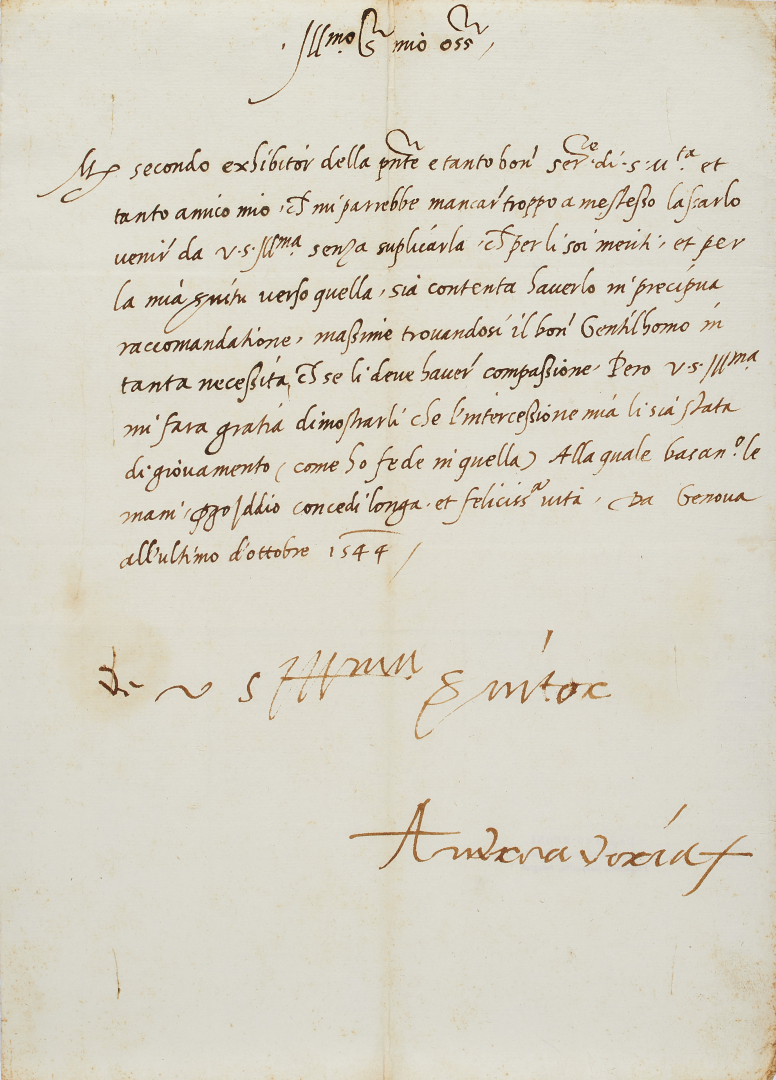 Ill^mo S^r mio oss^r /
M secondo exhibitor della pnte e tanto bon ser^re di s. M^ta. et
tanto amico mio, ch mi parrebbe mancar troppo a me stesso lassarlo
venir da v. s. Ill^ma senza suplicarla, ch per li soi meriti, et per
la mia suitu verso quella, sia contenta haverlo in precipua
raccomandatione, massime trovandosi il bon Gentilhomo in
tanta necessita, ch se li deve haver compassione. Pero v. s. Ill^ma
mi fara gratia dimostrarli che l'intercessione mia li sia stata
di giovamento (come ho fede in quella) Alla quale basan^o le
mani, Iddio concedi longa. et feliciss^a vita. Da Genova
all'ultimo d'ottobre 1544 /
D. v S Ill^ma S^uitor
Andrea Doria